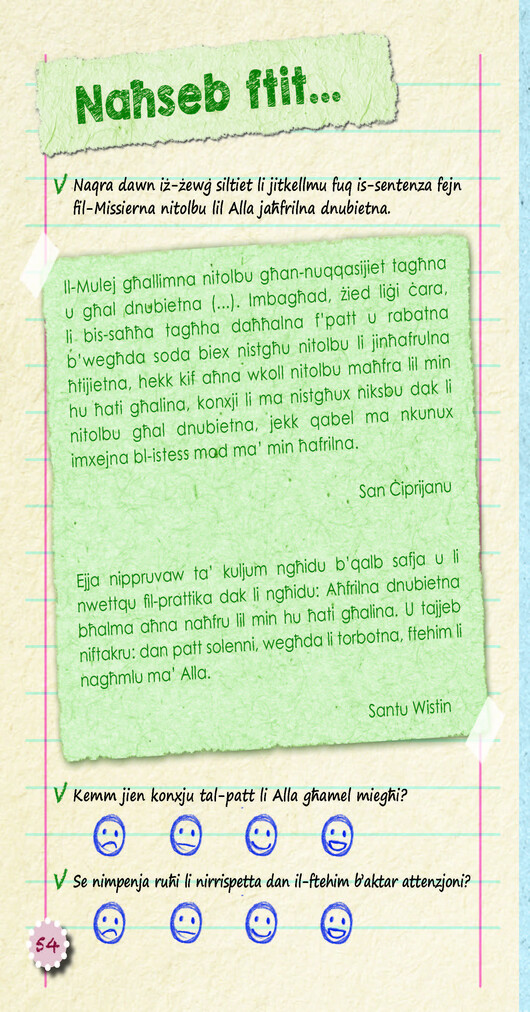 Naħseb ftit...
Naqra dawn iż-żewġ siltiet li jitkellmu fuq is-sentenza fejn
fil-Missierna nitolbu lil Alla jaħfrilna dnubietna.
Il-Mulej għallimna nitolbu għan-nuqqasijiet tagħna
u għal dnubietna (...). Imbagħad, żied liġi ċara,
li bis-saħħa tagħha daħħalna f'patt u rabatna
b'wegħda soda biex nistgħu nitolbu li jinħafrulna
ħtijietna, hekk kif aħna wkoll nitolbu maħfra lil min
hu ħati għalina, konxji li ma nistgħux niksbu dak li
nitolbu għal dnubietna, jekk qabel ma nkunux
imxejna bl-istess mod ma' min ħafrilna.
San Ċiprijanu
Ejja nippruvaw ta' kuljum ngħidu b'qalb safja u li
nwettqu fil-prattika dak li ngħidu: Aħfrilna dnubietna
bħalma aħna naħfru lil min hu ħati għalina. U tajjeb
niftakru: dan patt solenni, wegħda li torbotna, ftehim li
nagħmlu ma' Alla.
Santu Wistin
Kemm jien konxju tal-patt li Alla għamel miegħi?
Se nimpenja ruħi li nirrispetta dan il-ftehim b'aktar attenzjoni?
54